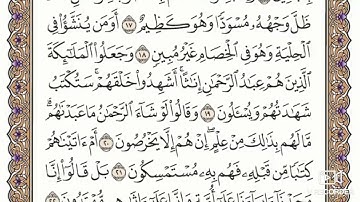 ظَلَّ وَجْهُهُۥ مُسْوَدًّا وَهُوَ كَظِيمٌ ١٧ أَوَمَن يُنَشَّؤُا۟ فِى
ٱلْحِلْيَةِ وَهُوَ فِى ٱلْخِصَامِ غَيْرُ مُبِينٍ ١٨ وَجَعَلُوا۟ ٱلْمَلَـٰٓئِكَةَ
ٱلَّذِينَ هُمْ عِبَـٰدُ ٱلرَّحْمَـٰنِ إِنَـٰثًا ۚ أَشَهِدُوا۟ خَلْقَهُمْ ۚ سَتُكْتَبُ
شَهَـٰدَتُهُمْ وَيُسْـَٔلُونَ ١٩ وَقَالُوا۟ لَوْ شَآءَ ٱلرَّحْمَـٰنُ مَا عَبَدْنَـٰهُم ۗ
مَّا لَهُم بِذَٰلِكَ مِنْ عِلْمٍ ۖ إِنْ هُمْ إِلَّا يَخْرُصُونَ ٢٠ أَمْ ءَاتَيْنَـٰهُمْ
كِتَـٰبًا مِّن قَبْلِهِۦ فَهُم بِهِۦ مُسْتَمْسِكُونَ ٢١ بَلْ قَالُوٓا۟ إِنَّا
وَجَدْنَآ ءَابَآءَنَا عَلَىٰٓ أُمَّةٍ وَإِنَّا عَلَىٰٓ ءَاثَـٰرِهِم مُّهْتَدُونَ ٢٢